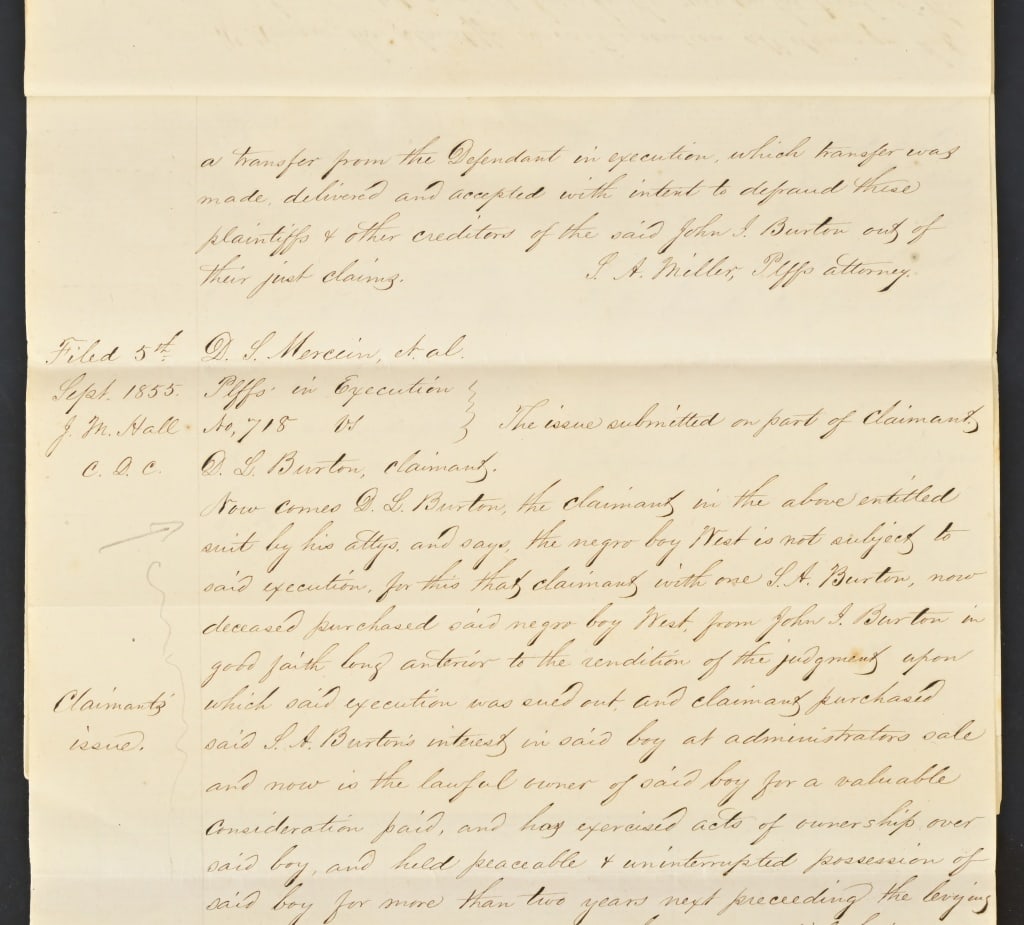 a transfer from the Defendant in execution, which transfer was
made, delivered and accepted with intent to defraud these
plaintiffs & other creditors of the said John I. Burton out of
their just claims. S. A. Miller, Plffs attorney.
Filed 5th
Sept. 1855.
J. M. Hall
C. D. C.
D. S. Mercein, et. al.
Plffs in Execution
No, 718 vs
The issue submitted on part of Claimant.
D. L. Burton, claimant.
Now comes D. L. Burton, the claimant in the above entitled
suit by his attys. and says, the negro boy West is not subject to
said execution, for this that claimant with one S. A. Burton, now
deceased purchased said negro boy West, from John I. Burton in
good faith long anterior to the rendition of the judgment upon
Claimants
issue.
which said execution was sued out, and claimant purchased
said S. A. Burton's interest in said boy at administrators sale
and now is the lawful owner of said boy for a valuable
consideration paid, and has exercised acts of ownership over
said boy, and held peaceable & uninterrupted possession of
said boy for more than two years next preceeding the levying